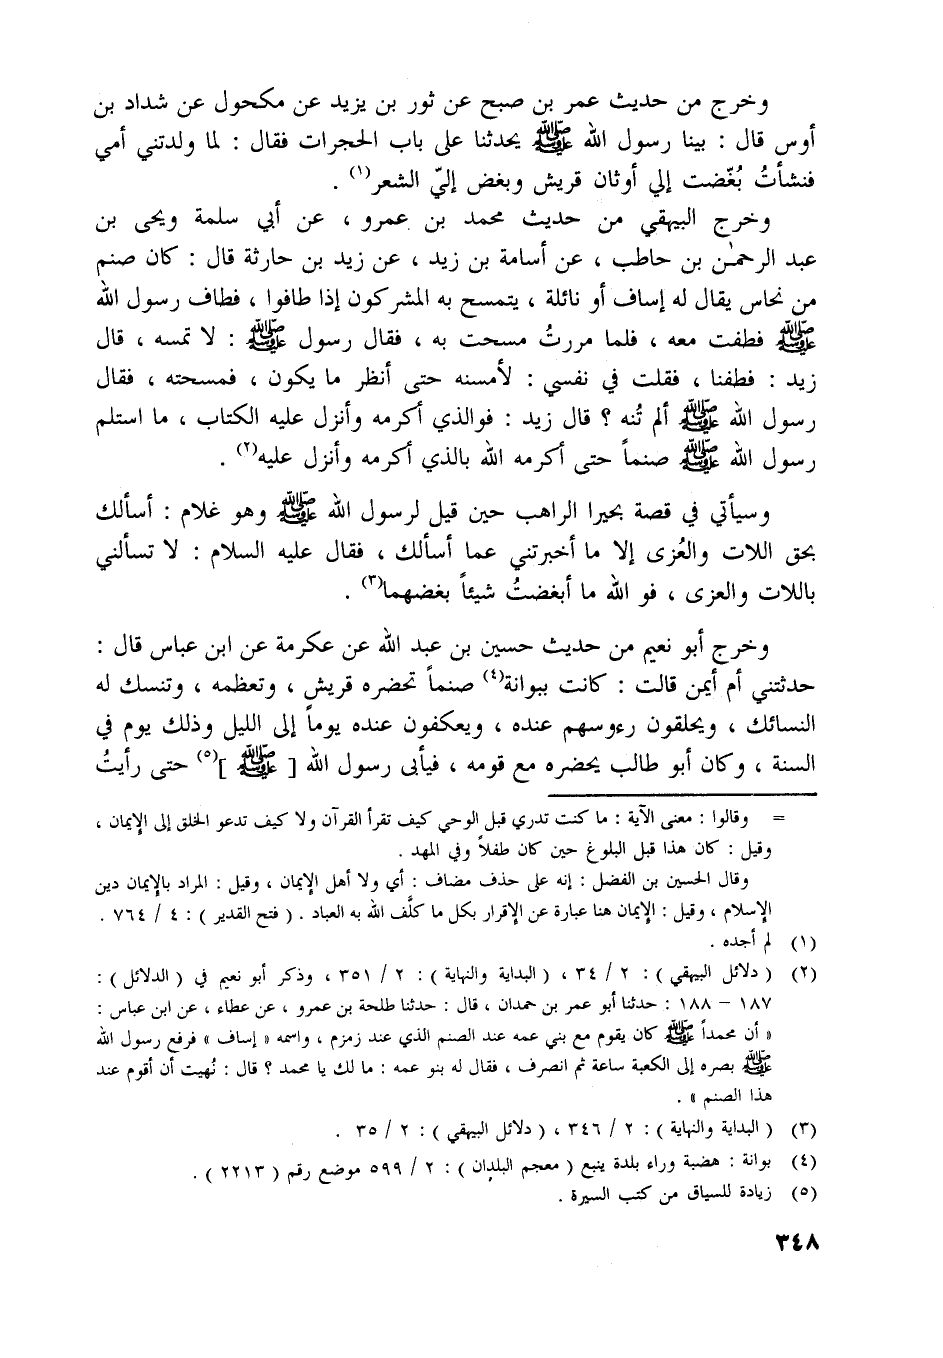 وخرج من حديث عمر بن صبح عن ثور بن يزيد عن مكحول عن شداد بن
أوس قال : بينا رسول الله ﷺ يحدثنا على باب الحجرات فقال : لما ولدتني أمي
فنشأتُ بُغّضت إلي أوثان قريش وبغض إليّ الشعر(١) .
وخرج البيهقي من حديث محمد بن عمرو ، عن أبي سلمة ويحى بن
عبد الرحمٰن بن حاطب ، عن أسامة بن زيد ، عن زيد بن حارثة قال : كان صنم
من نحاس يقال له إساف أو نائلة ، يتمسح به المشركون إذا طافوا ، فطاف رسول الله
ﷺ فطفت معه ، فلما مررتُ مسحت به ، فقال رسول ﷺ : لا تمسه ، قال
زيد : فطفنا ، فقلت في نفسي : لأمسنه حتى أنظر ما يكون ، فمسحته ، فقال
رسول الله ﷺ ألم تُنه ؟ قال زيد : فوالذي أكرمه وأنزل عليه الكتاب ، ما استلم
رسول الله ﷺ صنماً حتى أكرمه الله بالذي أكرمه وأنزل عليه(٢) .
وسيأتي في قصة بحيرا الراهب حين قيل لرسول الله ﷺ وهو غلام : أسألك
بحق اللات والعُزى إلا ما أخبرتني عما أسألك ، فقال عليه السلام : لا تسألني
باللات والعزى ، فو الله ما أبغضتُ شيئاً بغضهما(٣) .
وخرج أبو نعيم من حديث حسين بن عبد الله عن عكرمة عن ابن عباس قال :
حدثتني أم أيمن قالت : كانت ببوانة(٤) صنماً تحضره قريش ، وتعظمه ، وتنسك له
النسائك ، ويحلقون رءوسهم عنده ، ويعكفون عنده يوماً إلى الليل وذلك يوم في
السنة ، وكان أبو طالب يحضره مع قومه ، فيأبى رسول الله [ ﷺ ](٥) حتى رأيتُ
= وقالوا : معنى الآية : ما كنت تدري قبل الوحي كيف تقرأ القرآن ولا كيف تدعو الخلق إلى الإيمان ،
وقيل : كان هذا قبل البلوغ حين كان طفلاً وفي المهد .
وقال الحسين بن الفضل : إنه على حذف مضاف : أي ولا أهل الإيمان ، وقيل : المراد بالإيمان دين
الإسلام ، وقيل : الإيمان هنا عبارة عن الإقرار بكل ما كلَّف الله به العباد . ( فتح القدير ) : ٤ / ٧٦٤ .
(١) لم أجده .
(٢) ( دلائل البيهقي ) : ٢ / ٣٤ ، ( البداية والنهاية ) : ٢ / ٣٥١ ، وذكر أبو نعيم في ( الدلائل ) :
١٨٧ – ١٨٨ : حدثنا أبو عمر بن حمدان ، قال : حدثنا طلحة بن عمرو ، عن عطاء ، عن ابن عباس :
« أن محمداً ﷺ كان يقوم مع بني عمه عند الصنم الذي عند زمزم ، واسمه « إساف » فرفع رسول الله
ﷺ بصره إلى الكعبة ساعة ثم انصرف ، فقال له بنو عمه : ما لك يا محمد ؟ قال : نُهيت أن أقوم عند
هذا الصنم » .
(٣) ( البداية والنهاية ) : ٢ / ٣٤٦ ، ( دلائل البيهقي ) : ٢ / ٣٥ .
(٤) بوانة : هضبة وراء بلدة ينبع ( معجم البلدان ) : ٢ / ٥٩٩ موضع رقم ( ٢٢١٣ ) .
(٥) زيادة للسياق من كتب السيرة .
٣٤٨